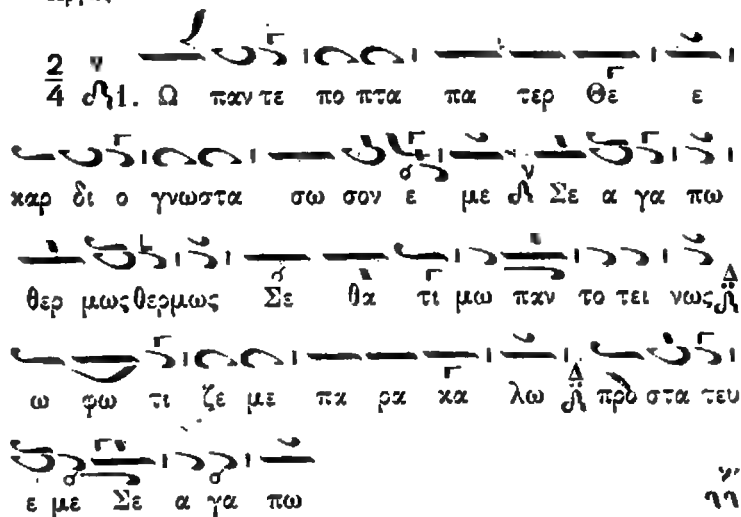 2/4 1. Ω παν τε πο πτα πα τερ Θε ε
καρ δι ο γνωστα σω σον ε με Σε α γα πω
θερ μως θερμως Σε θα τι μω παν το τει νως
ω φω τι ζε με πα ρα κα λω προ στα τευ
ε με Σε α γα πω